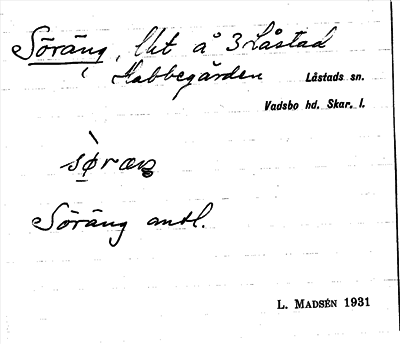 Söräng, lht å 3 Låstad
i Habbegården Låstads sn.
Vadsbo hd. Skar. l.
sø̀ræŋ
Söräng antl.
L. MADSÉN 1931